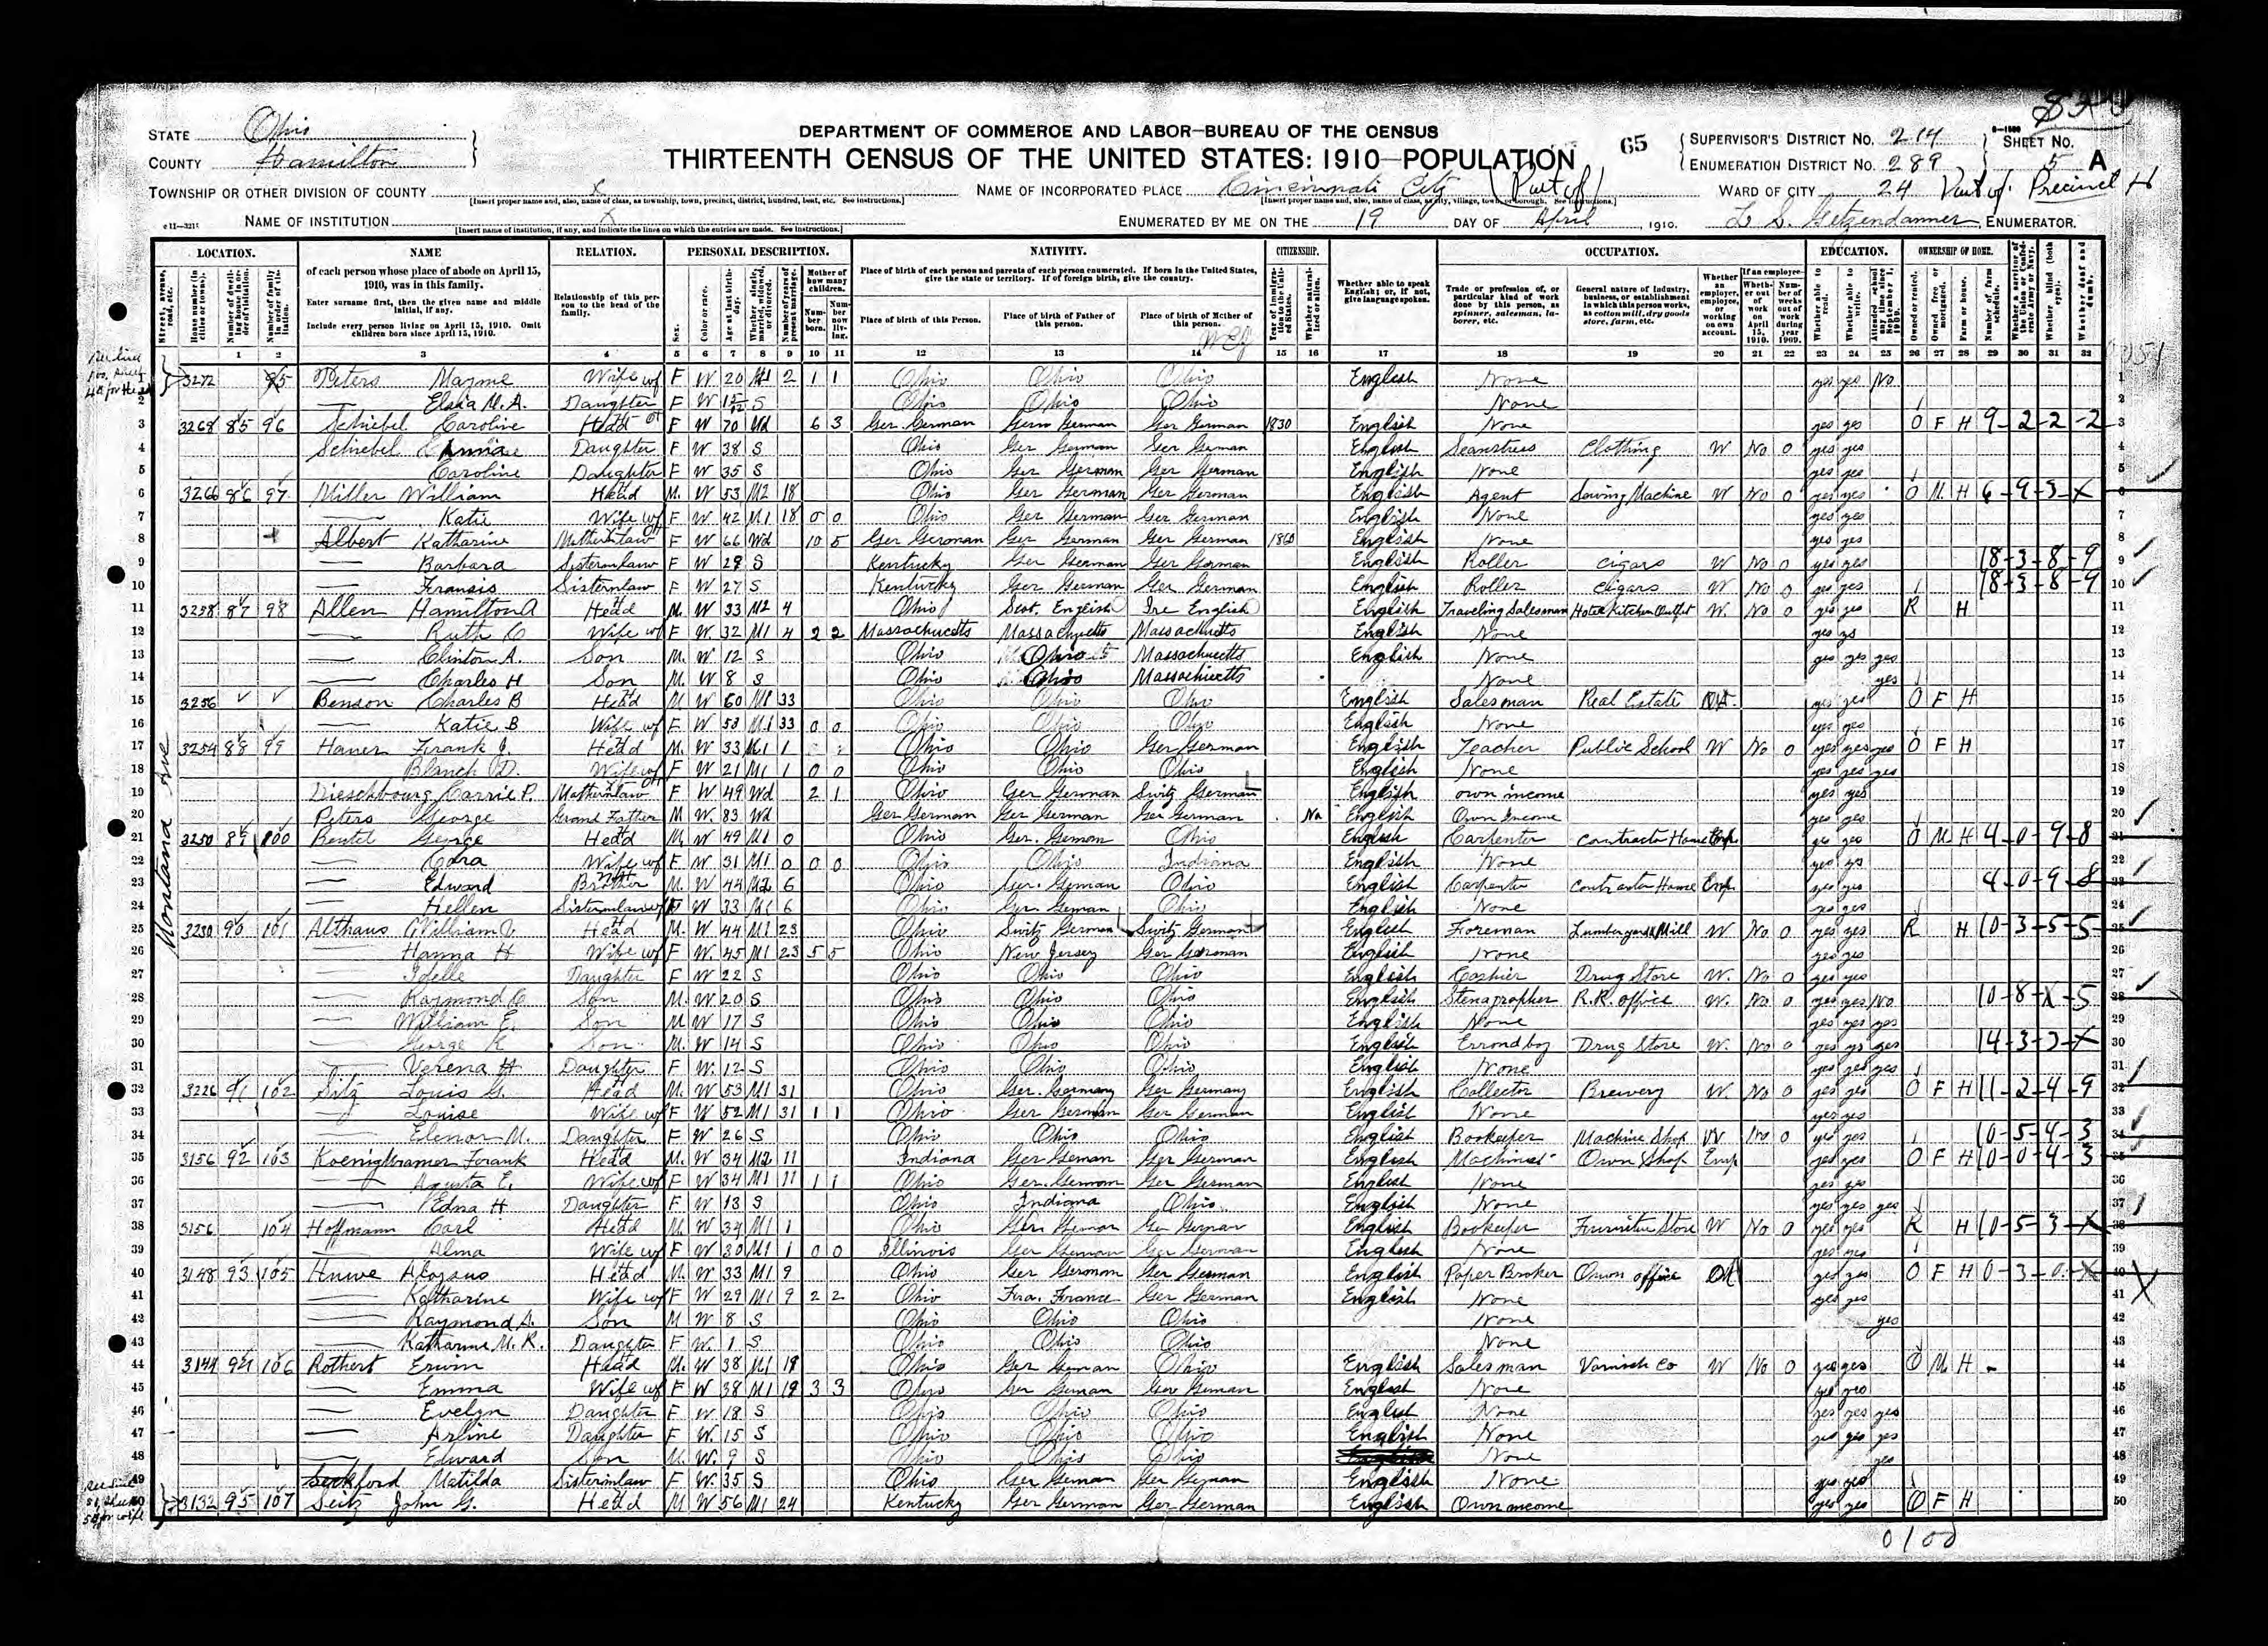 STATE Ohio
COUNTY Hamilton
DEPARTMENT OF COMMERCE AND LABOR—BUREAU OF THE CENSUS
THIRTEENTH CENSUS OF THE UNITED STATES: 1910—POPULATION
65
SUPERVISOR'S DISTRICT No. 214
ENUMERATION DISTRICT No. 289
SHEET No. 5 A
TOWNSHIP OR OTHER DIVISION OF COUNTY X
NAME OF INCORPORATED PLACE Cincinnati City (Part of)
WARD OF CITY 24 Part of Precinct H
NAME OF INSTITUTION X
ENUMERATED BY ME ON THE 19 DAY OF April, 1910. L. S. Getzendanner, ENUMERATOR.
LOCATION. NAME RELATION. PERSONAL DESCRIPTION. NATIVITY. CITIZENSHIP. OCCUPATION. EDUCATION. OWNERSHIP OF HOME.
of each person whose place of abode on April 15, 1910, was in this family.
Enter surname first, then the given name and middle initial, if any.
Include every person living on April 15, 1910. Omit children born since April 15, 1910.
Relationship of this person to the head of the family.
Place of birth of each person and parents of each person enumerated. If born in the United States, give the state or territory. If of foreign birth, give the country.
Place of birth of this Person. Place of birth of Father of this person. Place of birth of Mother of this person.
Whether able to speak English; or, if not, give language spoken.
Trade or profession of, or particular kind of work done by this person, as spinner, salesman, laborer, etc.
General nature of industry, business, or establishment in which this person works, as cotton mill, dry goods store, farm, etc.
1 2 3 4 5 6 7 8 9 10 11 12 13 14 15 16 17 18 19 20 21 22 23 24 25 26 27 28 29 30 31 32
Monland Ave
1 3272 95 Peters Mayme Wife F W 20 M1 2 1 1 Ohio Ohio Ohio English None yes yes No
2 Elsia M. A. Daughter F W S Ohio Ohio Ohio None
3 3268 85 96 Schiebel Caroline Head F W 70 Wd 6 3 Ger German Ger German Ger German 1830 English None yes yes O F H 9-2-2-2
4 Schiebel Daughter F W 38 S Ohio Ger German Ger German English Seamstress Clothing W No 0 yes yes
5 Caroline Daughter F W 35 S Ohio Ger German Ger German English None yes yes
6 3266 86 97 Miller William Head M. W 53 M2 18 Ohio Ger German Ger German English Agent Sewing Machine W No 0 yes yes O M H 6-9-3-X
7 Katie Wife F W 42 M1 18 0 0 Ohio Ger German Ger German English None yes yes
8 Albert Katharine Motherinlaw F W 66 Wd 10 5 Ger German Ger German Ger German 1860 English None yes yes
9 Barbara Sisterinlaw F W 29 S Kentucky Ger German Ger German English Roller Cigars W No 0 yes yes 8-3-8-9
10 Fransis Sisterinlaw F W 27 S Kentucky Ger German Ger German English Roller Cigars W No 0 yes yes 8-3-8-9
11 3258 87 98 Allen Hamilton A Head M. W 33 M2 4 Ohio Scot. English Ire English English Traveling Salesman Hotel Kitchen Outfit W. No 0 yes yes R H
12 Ruth C Wife F W. 32 M1 4 2 2 Massachusetts Massachusetts Massachusetts English None yes ys
13 Clinton A. Son M. W 12 S Ohio Ohio Massachusetts English None yes yes yes
14 Charles H Son M. W 8 S Ohio Ohio Massachusetts None yes
15 3256 Benson Charles B Head M W 60 M1 33 Ohio Ohio Ohio English Salesman Real Estate OA. yes yes O F H
16 Katie B Wife F W 53 M1 33 0 0 Ohio Ohio Ohio English None yes yes
17 3254 88 99 Haner Frank J. Head M. W 33 M1 1 Ohio Ohio Ger German English Teacher Public School W No 0 yes yes yes O F H
18 Blanch D. Wife F W 21 M1 1 0 0 Ohio Ohio Ohio English None yes yes yes
19 Dieschbourg Carrie P. Motherinlaw F W 49 Wd 2 1 Ohio Ger German Switz German English own income yes yes
20 Peters George Grand Father M W. 83 Wd Ger German Ger German Ger German Na English Own Income yes yes
21 3250 89 100 Beutel George Head M W 49 M1 0 Ohio Ger. German Ohio English Carpenter contractor House Emp. yes yes O M H 4-0-9-8
22 Cora Wife F W. 31 M1 0 0 0 Ohio Ohio Indiana English None yes ys
23 Edward Brother M. W 44 M2 6 Ohio Ger. German Ohio English Carpenter Contractor House Emp. yes yes 4-0-9-8
24 Hellen Sisterinlaw F W 33 M1 6 Ohio Ger German Ohio English None yes yes
25 3230 90 101 Althaus William Head M. W 44 M1 23 Ohio Switz German Switz German English Foreman Lumberyard Mill W No 0 yes yes R H 10-3-5-5
26 Hanna H Wife F W. 45 M1 23 5 5 Ohio New Jersey Ger German English None yes yes
27 Idelle Daughter F W 22 S Ohio Ohio Ohio English Cashier Drug Store W. No 0 yes yes
28 Raymond C. Son M. W. 20 S Ohio Ohio Ohio English Stenagropher R.R. office W. No 0 yes yes No 10-8-X-5
29 William E. Son M W 17 S Ohio Ohio Ohio English None yes yes yes
30 George E Son M. W 14 S Ohio Ohio Ohio English Errond boy Drug Store W. No 0 yes ys yes 4-3-3-X
31 Verena H Daughter F W. 12 S Ohio Ohio Ohio English None yes yes yes
32 3226 91 102 Sitz Louis G. Head M. W 53 M1 31 Ohio Ger. Germany Ger Germany English Collector Brewery W. No 0 yes yes O F H 11-2-4-9
33 Louise Wife F W 52 M1 31 1 1 Ohio Ger German Ger German English None yes yes
34 Elenor M. Daughter F W 26 S Ohio Ohio Ohio English Bookeeper Machine Shop W No 0 yes yes 10-5-4-3
35 3156 92 103 Koenigkramer Frank Head M. W 34 M2 11 Indiana Ger German Ger German English Machinist Own Shop Emp yes yes O F H 10-0-4-3
36 Agusta E. Wife F W 34 M1 11 1 1 Ohio Ger. German Ger German English None yes yes
37 Edna H Daughter F W 13 S Ohio Indiana Ohio English None yes yes yes
38 3156 104 Hoffmann Carl Head M. W 34 M1 1 Ohio Ger German Ger German English Bookeeper Furnitur Store W No 0 yes yes R H 10-5-3-X
39 Alma Wife F W 30 M1 1 0 0 Illinois Ger German Ger German English None yes yes
40 3148 93 105 Huwe Aloysus Head M. W 33 M1 9 Ohio Ger German Ger German English Paper Broker Own office OA yes yes O F H 0-3-0-X
41 Katharine Wife F W 29 M1 9 2 2 Ohio Fra. France Ger German English None yes yes
42 Raymond A. Son M W 8 S Ohio Ohio Ohio None yes
43 Katharine M. R. Daughter F W. 1 S Ohio Ohio Ohio None
44 3144 94 106 Rothert Erwin Head M. W 38 M1 19 Ohio Ger German Ohio English Salesman Varnish Co W No 0 yes yes O M H
45 Emma Wife F W 38 M1 19 3 3 Ohio Ger German Ger German English None yes yes
46 Evelyn Daughter F W 18 S Ohio Ohio Ohio English None yes yes yes
47 Arline Daughter F W. 15 S Ohio Ohio Ohio English None yes yes yes
48 Edward Son M. W. 9 S Ohio Ohio Ohio None yes
49 Matilda Sisterinlaw F W. 35 S Ohio Ger German Ger German English None yes yes
50 3132 95 107 Seitz John G. Head M W 56 M1 24 Kentucky Ger German Ger German English Own income yes yes O F H
0100